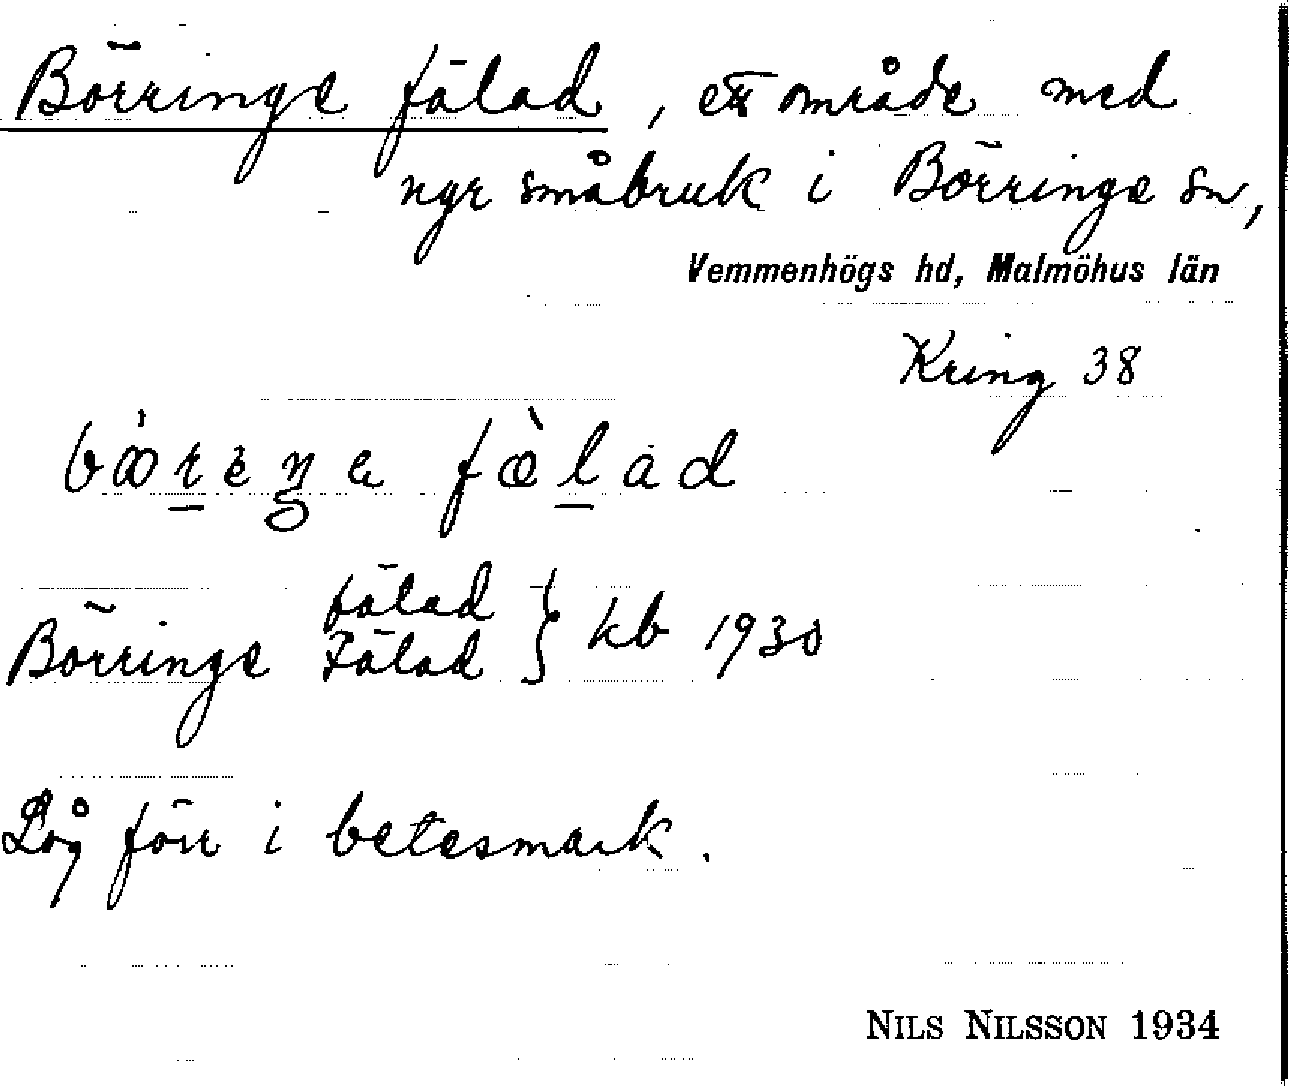 Börringe fälad, ett område med
ngr småbruk i Börringe sn,
Vemmenhögs hd, Malmöhus län
Kring 38
Börringe fälad } kb 1930
Fälad
Låg förr i betesmark.
NILS NILSSON 1934